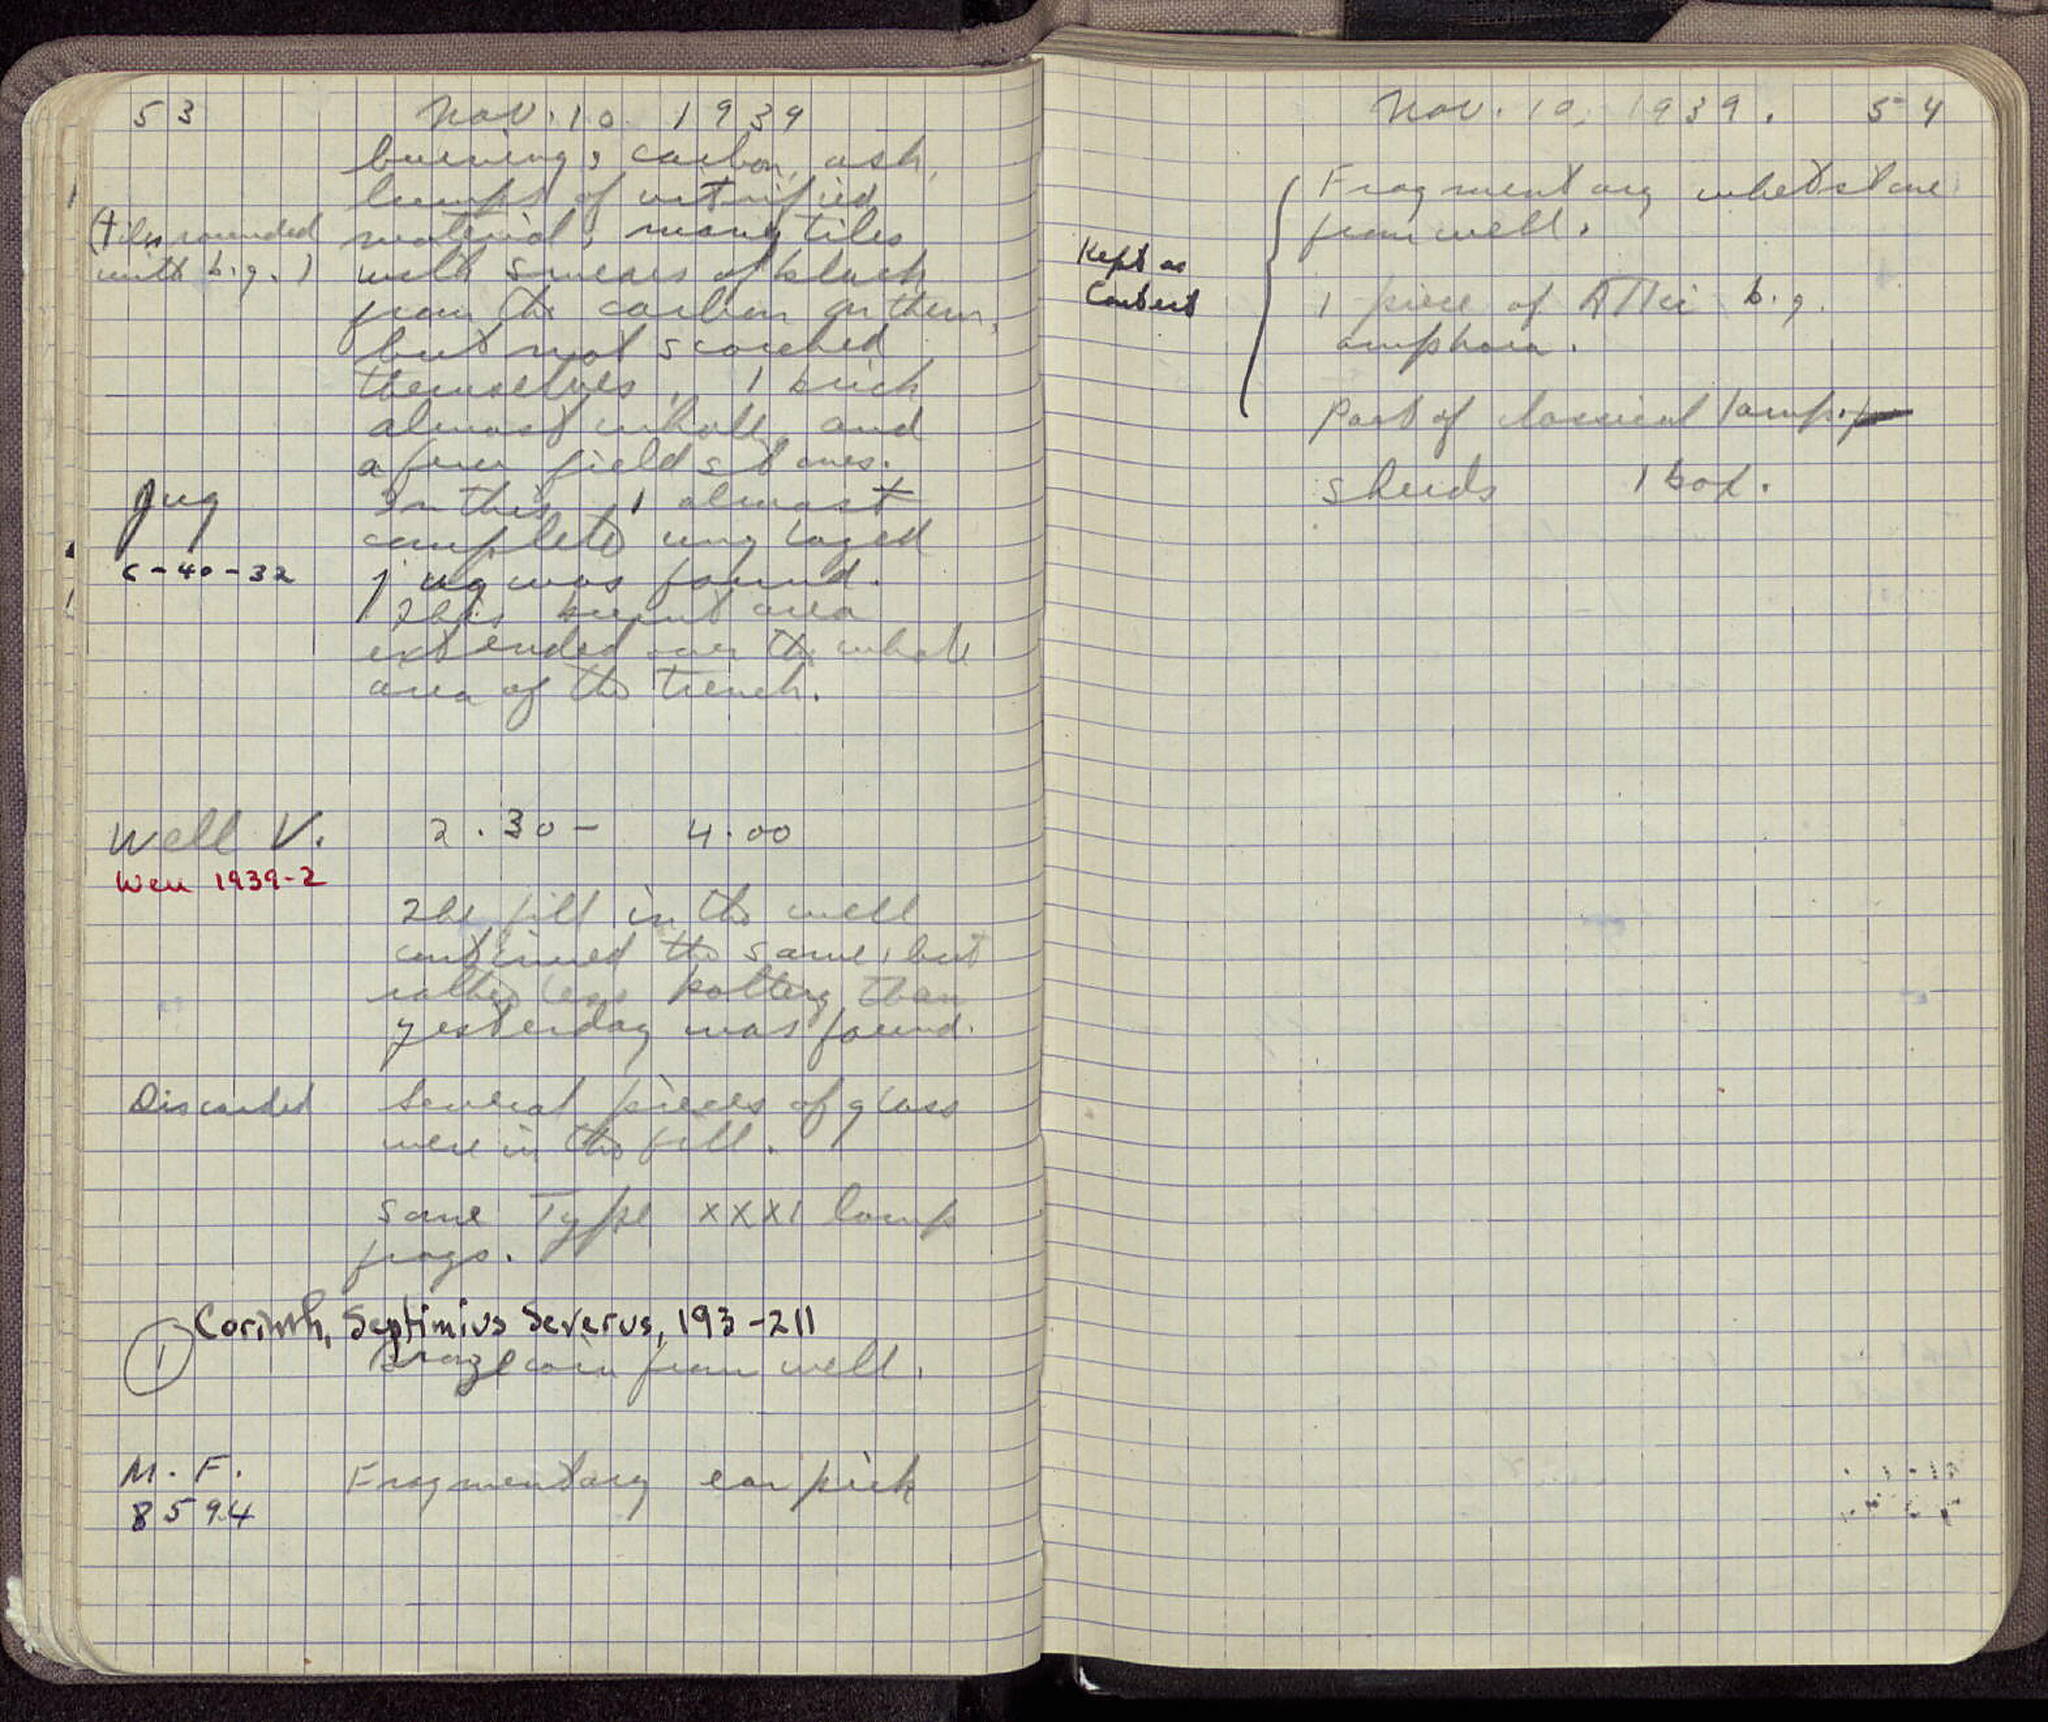 53 Nov. 10. 1939
burning, carbon, ash,
lumps of vitrified
(tiles rounded material, many tiles
with b.g.) with smears of black
from the carbon on them,
but not scorched
themselves, 1 brick
almost whole, and
a few field stones.
Jug In this, 1 almost
complete unglazed
C-40-32 jug was found.
This burnt area
extended over the whole
area of the trench.
Well V. 2.30 - 4.00
Well 1939-2
The fill in the well
continued the same, but
rather less pottery than
yesterday was found.
Discarded Several pieces of glass
were in the fill.
Some Type XXXI lamp
frags.
Corinth, Septimius Severus, 193-211
1 Bronze coin from well.
M.F. Fragmentary ear pick
8594
Nov. 10, 1939. 54
Fragmentary whetstone
from well.
Kept as
Context
1 piece of Attic b.g.
amphora.
Part of classical lamp.
sherds 1 box.